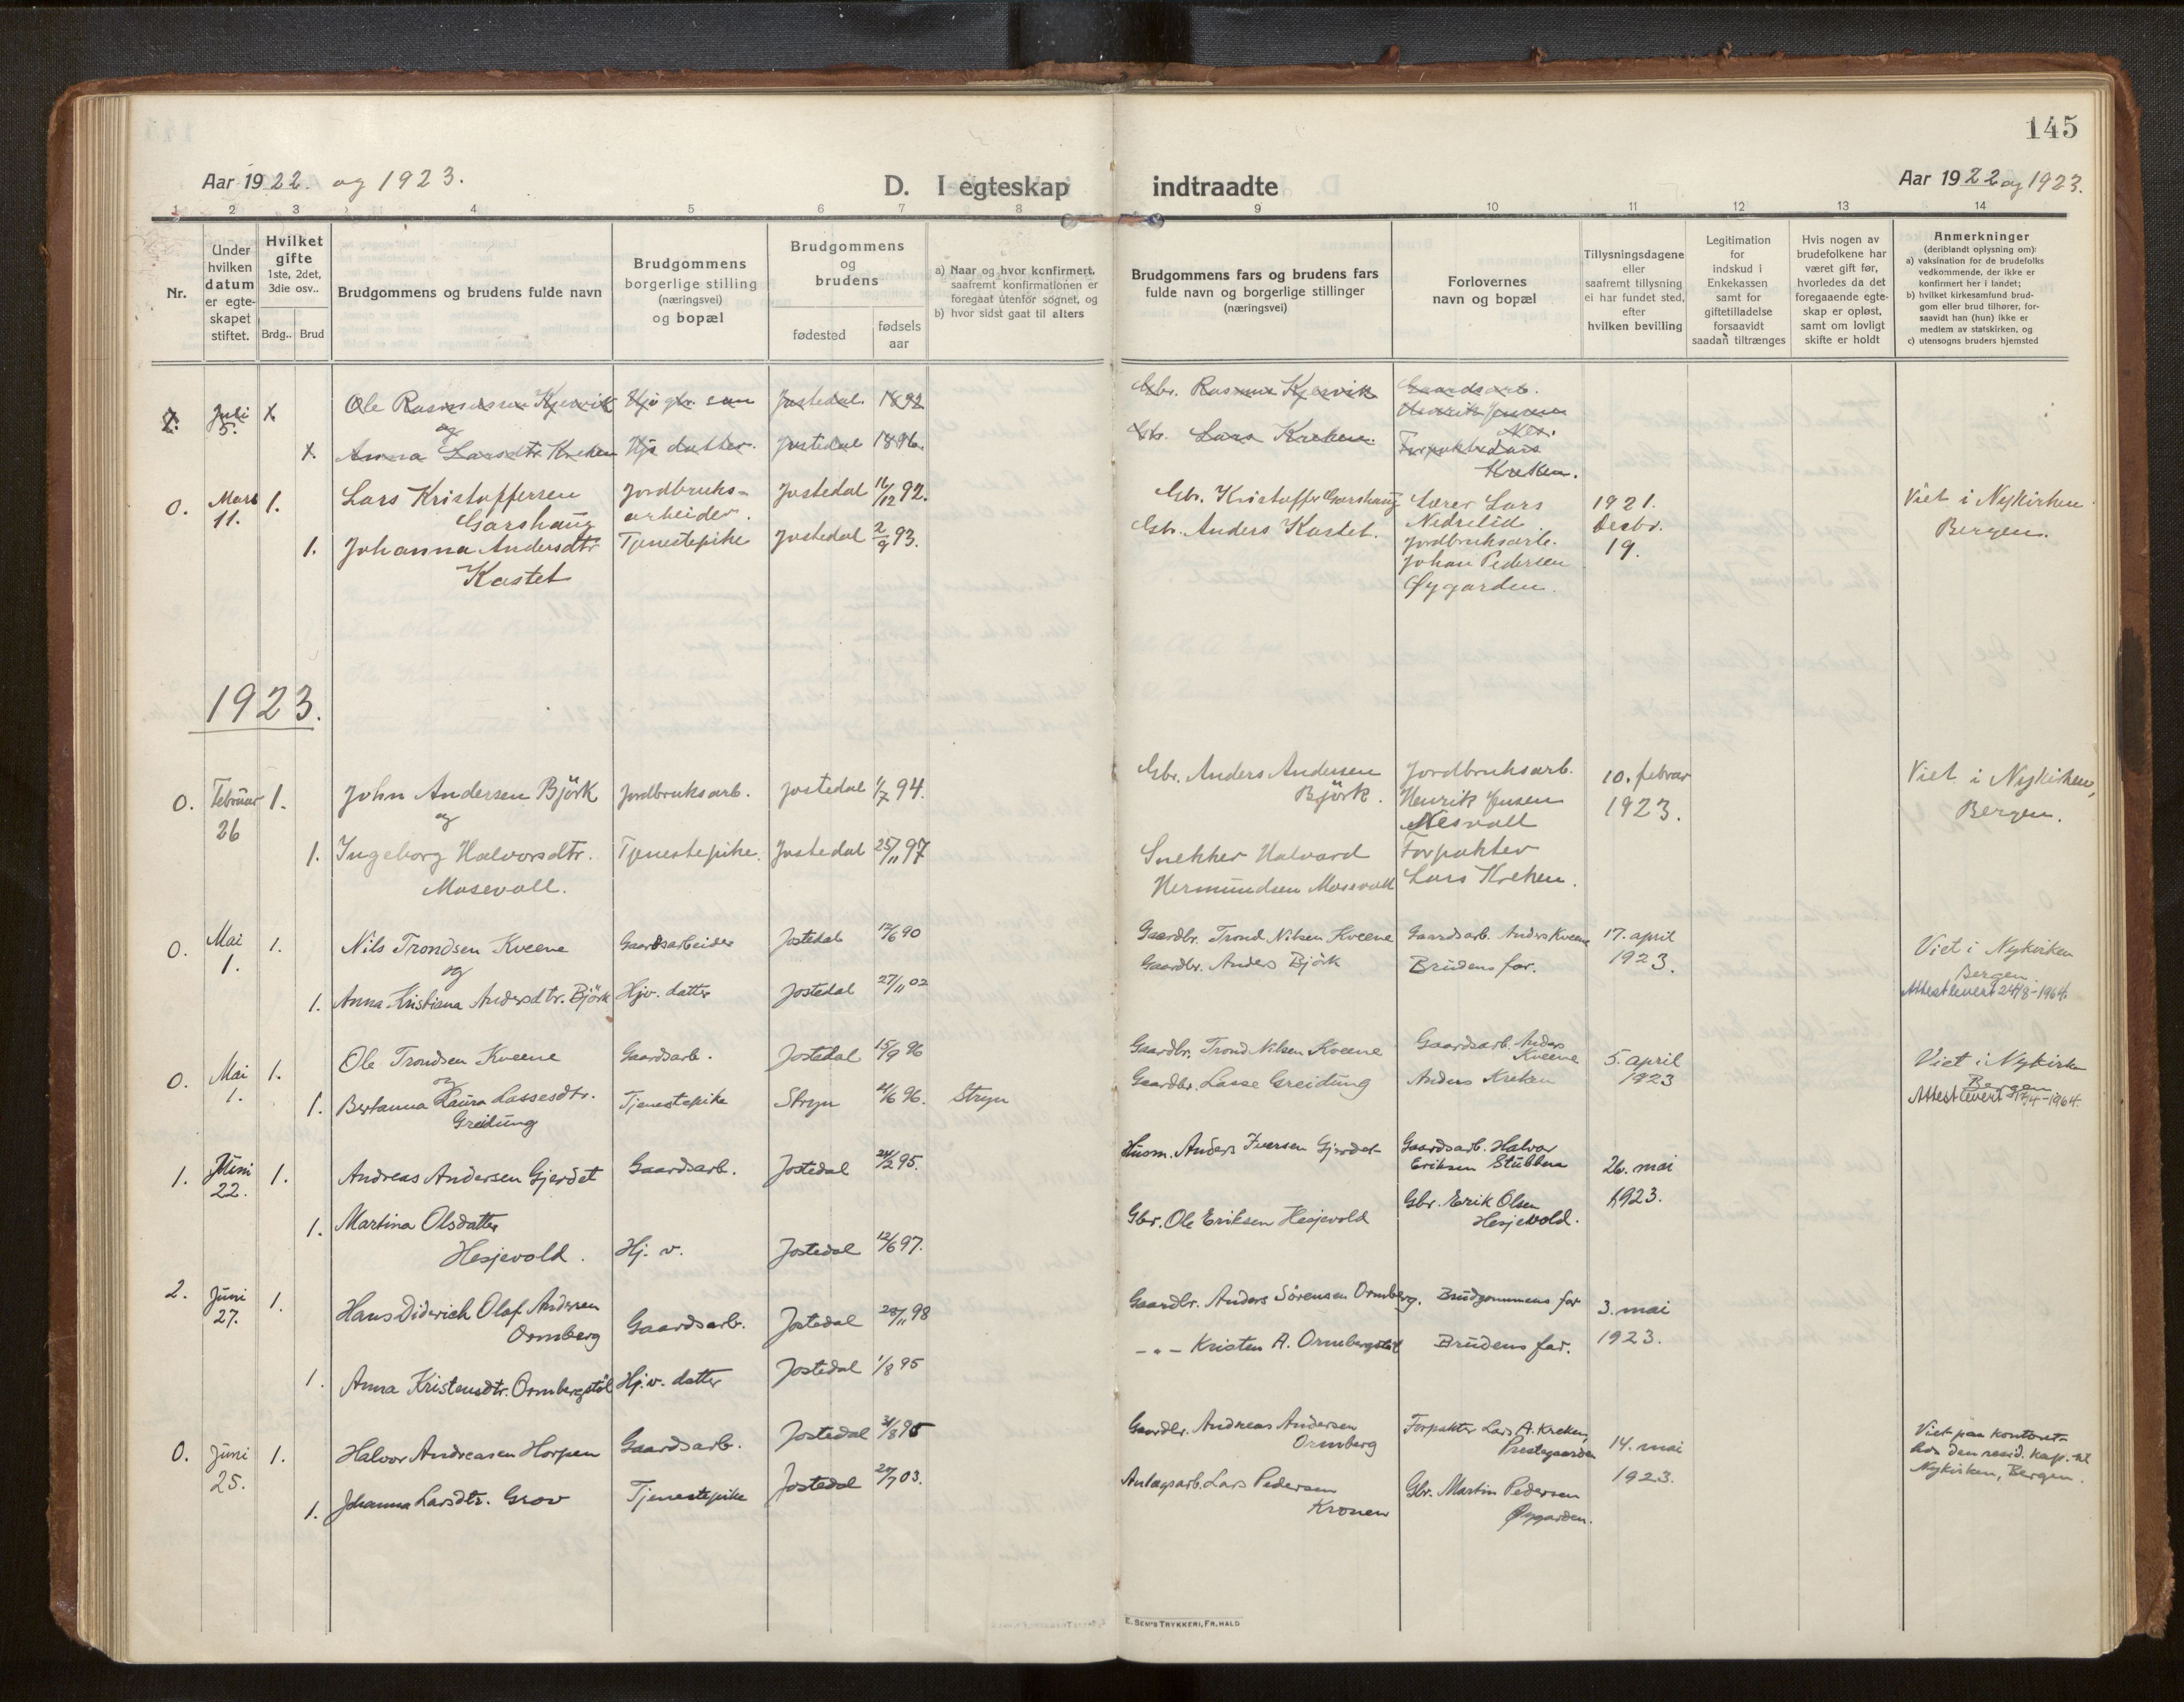 145
Aar 1922. og 1923.
D. I egteskap indtraadte
Aar 1922 og 1923.
1 2 3 4 5 6 7 8 9 10 11 12 13 14
Nr.
Under hvilken datum er egte-skapet stiftet.
Hvilket gifte
1ste, 2det, 3die osv..
Brdg.. Brud
Brudgommens og brudens fulde navn
Brudgommens borgerlige stilling (næringsvei) og bopæl
Brudgommens og brudens
fødested
fødsels aar
a) Naar og hvor konfirmert, saafremt konfirmationen er foregaat utenfor sognet, og
b) hvor sidst gaat til alters
Brudgommens fars og brudens fars fulde navn og borgerlige stillinger (næringsvei)
Forlovernes navn og bopæl
Tillysningsdagene eller saafremt tillysning ei har fundet sted, efter hvilken bevilling
Legitimation for indskud i Enkekassen samt for giftetilladelse forsaavidt saadan tiltrænges
Hvis nogen av brudefolkene har været gift før, hvorledes da det foregaaende egte-skap er opløst, samt om lovligt skifte er holdt
Anmerkninger
(deriblandt oplysning om):
a) vaksination for de brudefolks vedkommende, der ikke er konfirmert her i landet;
b) hvilket kirkesamfund brud-gom eller brud tilhører, for-saavidt han (hun) ikke er medlem av statskirken, og
c) utensogns bruders hjemsted
Juli 5.
Ole Rasmussen Kjervik
Hj. gbr. søn
Jostedal
1892
Gbr. Rasmus Kjervik
Gaardsarb. Henrik Jensen Nes.
og
Anna Larsdtr. Kreken
Hjv datter.
Jostedal
1896.
Gbr. Lars Kreken.
Forpakter Lars Kreken.
0. Mars 11. 1.
Lars Kristoffersen Garshaug
Jordbruks-arbeider.
Jostedal
16/12 92.
Gbr. Kristoffer Garshaug
Lærer Lars Nedrelid
1921. Desbr. 19.
Viet i Nykirken Bergen.
1. Johanna Andersdtr Kastet
Tjenestepike
Jostedal
2/9 93.
Gbr. Anders Kastet.
Jordbruksarb. Johan Pedersen Øygarden.
1923.
0. Februar 26 1.
John Andersen Björk
Jordbruksarb.
Jostedal
1/7 94.
Gbr. Anders Andersen Björk.
Jordbruksarb. Henrik Jensen Nesvoll
10. februar 1923.
Viet i Nykirken, Bergen.
og
1. Ingeborg Halvorsdtr. Mosevoll.
Tjenestepike.
Jostedal
25/11 97
Snekker Halvard Hermundsen Mosevoll
Forpakter Lars Kreken.
0. Mai 1. 1.
Nils Trondsen Kveene
Gaardsarbeider
Jostedal
17/6 90
Gaardbr. Trond Nilsen Kveene
Gaardsarb. Anders Kveene
17. april 1923.
Viet i Nykirken Bergen.
og
1. Anna Kristiana Andersdtr. Björk
Hjv. datter
Jostedal
27/11 02
Gaardbr. Anders Björk
Brudens far.
Attest levert 24/8-1964.
0. Mai 1. 1.
Ole Trondsen Kveene
Gaardsarb.
Jostedal
15/9 96
Gaardbr. Trond Nilsen Kveene
Gaardsarb. Anders Kveene
5. april 1923
Viet i Nykirken Bergen
og
1. Bertanna Laura Lassesdtr. Greidung
Tjenestepike
Stryn
21/6 96.
Stryn
Gaardbr. Lasse Greidung
Anders Kreken
Attest levert 21/4-1964.
1. Juni 22. 1.
Andreas Andersen Gjerdet
Gaardsarb.
Jostedal
24/2 95.
Husm. Anders Iversen Gjerdet
Gaardsarb. Halvor Eriksen Stubben
26. mai 1923.
1. Martina Olsdatter Hesjevold.
Hj. v.
Jostedal
12/6 97.
Gbr. Ole Eriksen Hesjevold
Gbr. Erik Olsen Hesjevold.
2. Juni 27. 1.
Hans Diderich Olaf Andersen Ormberg
Gaardsarb.
Jostedal
28/11 98
Gaardbr. Anders Sörensen Ormberg.
Brudgommens far
3. mai 1923.
1. Anna Kristensdtr. Ormbergstöl
Hj. v. datter
Jostedal
1/8 95
- " - Kristen A. Ormbergstöl
Brudens far.
0. Juni 25. 1.
Halvor Andreasen Horpen
Gaardsarb.
Jostedal
31/8 95
Gaardbr. Andreas Andersen Ormberg
Forpakter Lars A. Kreken, Prestegaarden
14. mai 1923.
Viet paa kontoret hos den resid. kap. til Nykirken, Bergen.
1. Johanna Larsdtr. Grov
Tjenestepike
Jostedal
27/7 03.
Anlægsarb. Lars Pedersen Kronen
Gbr. Martin Pedersen Øygarden.
E. SEM'S TRYKKERI, FR. HALD